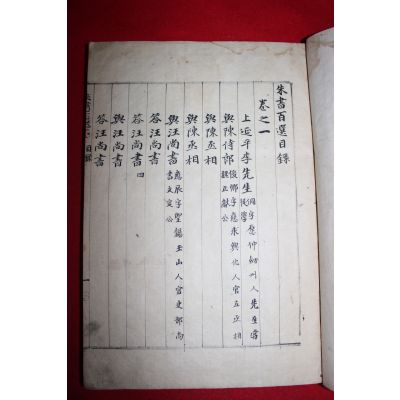 朱書百選目錄
卷之一
上延平李先生 侗字愿仲劒州人先生嘗
從學
與陳侍郎 俊卿字應求興化人官左丞相
諡正獻公
與陳丞相
與陳丞相
與汪尚書 應辰字聖錫玉山人官吏部尚
書文定公
答汪尚書
答汪尚書 四
與汪尚書
答汪尚書
目錄 一